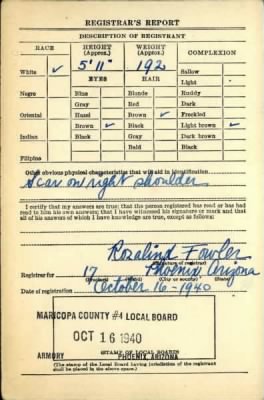 REGISTRAR'S REPORT
DESCRIPTION OF REGISTRANT
RACE HEIGHT (Approx.) WEIGHT (Approx.) COMPLEXION
White ✓ 5' 11" 192 Sallow
EYES HAIR Light
Negro Blue Blonde Ruddy
Gray Red Dark
Oriental Hazel Brown ✓ Freckled
Brown ✓ Black Light brown ✓
Indian Black Gray Dark brown
Bald Black
Filipino
Other obvious physical characteristics that will aid in identification
Scar on right shoulder
I certify that my answers are true; that the person registered has read or has had
read to him his own answers; that I have witnessed his signature or mark and that
all of his answers of which I have knowledge are true, except as follows:
Rosalind Fowler
(Signature of registrar)
Registrar for 17 Phoenix, Arizona
(Precinct) (City or county) (State)
Date of registration October 16-1940
MARICOPA COUNTY #4 LOCAL BOARD
OCT 16 1940
ARMORY PHOENIX, ARIZONA
(STAMP OF LOCAL BOARD)
(The stamp of the Local Board having jurisdiction of the registrant
shall be placed in the above space.)